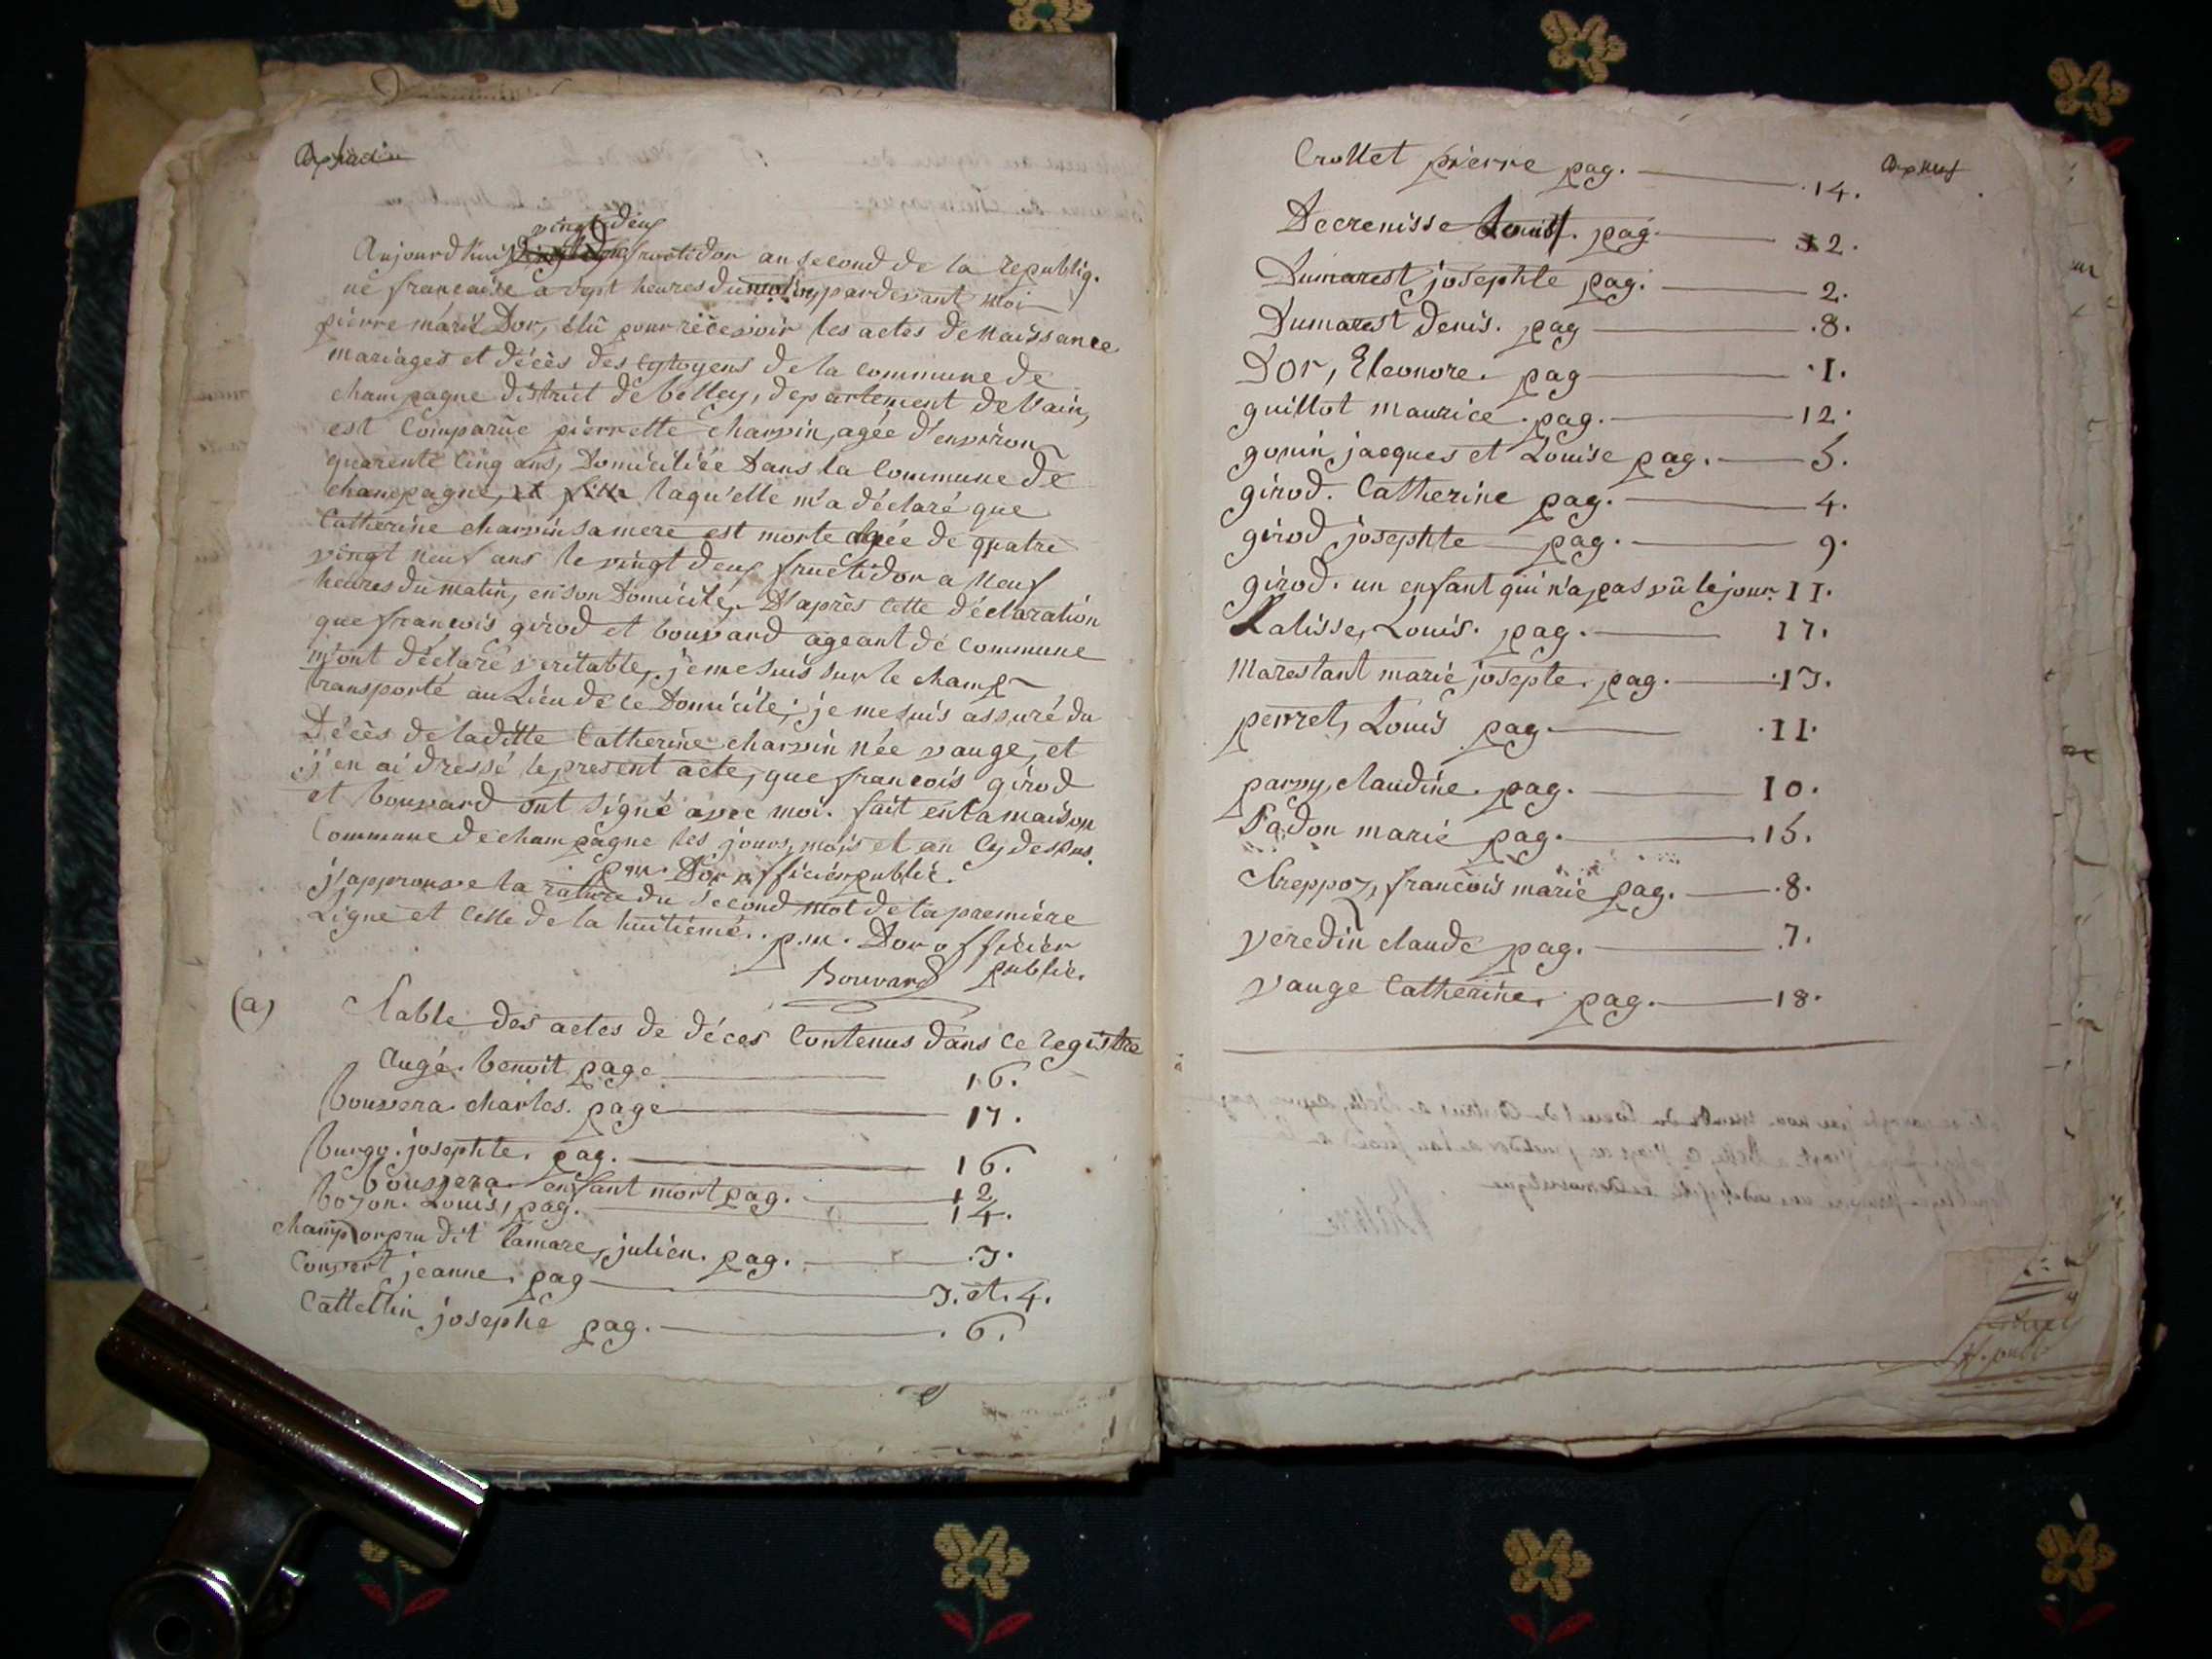 vingt deux
Aujourd'hui fructidor an second de la républiq.
ue francaise a sept heures du matin, pardevant moi
pierre marie Dor, élû pour recevoir les actes de naissance
mariages et décès des cytoyens de la commune de
champagne district de belley, département de l'ain,
est comparüe pierrette charvin, agée d'environ
quarente cinq ans, Domiciliée Dans la commune de
champagne, et fille laqu'elle m'a déclaré que
Catherine charvin sa mere est morte agée de quatre
vingt neuf ans le vingt deux fructidor a neuf
heures du matin, en son Domicile, D'après cette déclaration
que francois girod et bouvard ageant de commune
m'ont déclaré veritable, je me suis sur le champ
transporté au Lieu de ce Domicile; je me suis assuré du
Décès de laditte Catherine charvin née vauge, et
j'en ai dressé le present acte, que francois girod
et bouvard ont signé avec moi. fait en la maison
Commune de champagne les jours, mois et an cy dessus.
p.m. Dor officier public.
j'approuve la rature du second mot de la première
Ligne et celle de la huitiéme. p.m. Dor officier
Bouvard public.
(a) Table des actes de déces contenus dans ce registre
Augé. benoit page 16.
bouvera charles. page 17.
burgo. josephte. pag. 16.
bouvera enfant mort pag. 12
bozon. Louis, pag. 14.
champ orpru dit lamare, julien. pag. 3.
Convert jeanne. pag 3. et. 4.
Cattettin josephe pag. 6.
Crottet pierre pag. 14.
Decrenisse Louis. pag. 2.
Dumarest josephte pag. 2.
Dumarest Denis. pag 8.
Dor, Eleonore. pag 1.
guillot maurice. pag. 12.
gonin jacques et Louise pag. 5.
girod. Catherine pag. 4.
girod josephte pag. 9.
girod. un enfant qui n'a pas vû le jour. 11.
Lalisse, Louis. pag. 17.
Marestant marie josepte. pag. 13.
perret, Louis pag. 11.
parvy, claudine. pag. 10.
Padon marie pag. 15.
Treppoz, francois marie pag. 8.
veredin claude pag. 7.
vauge Catherine. pag. 18.